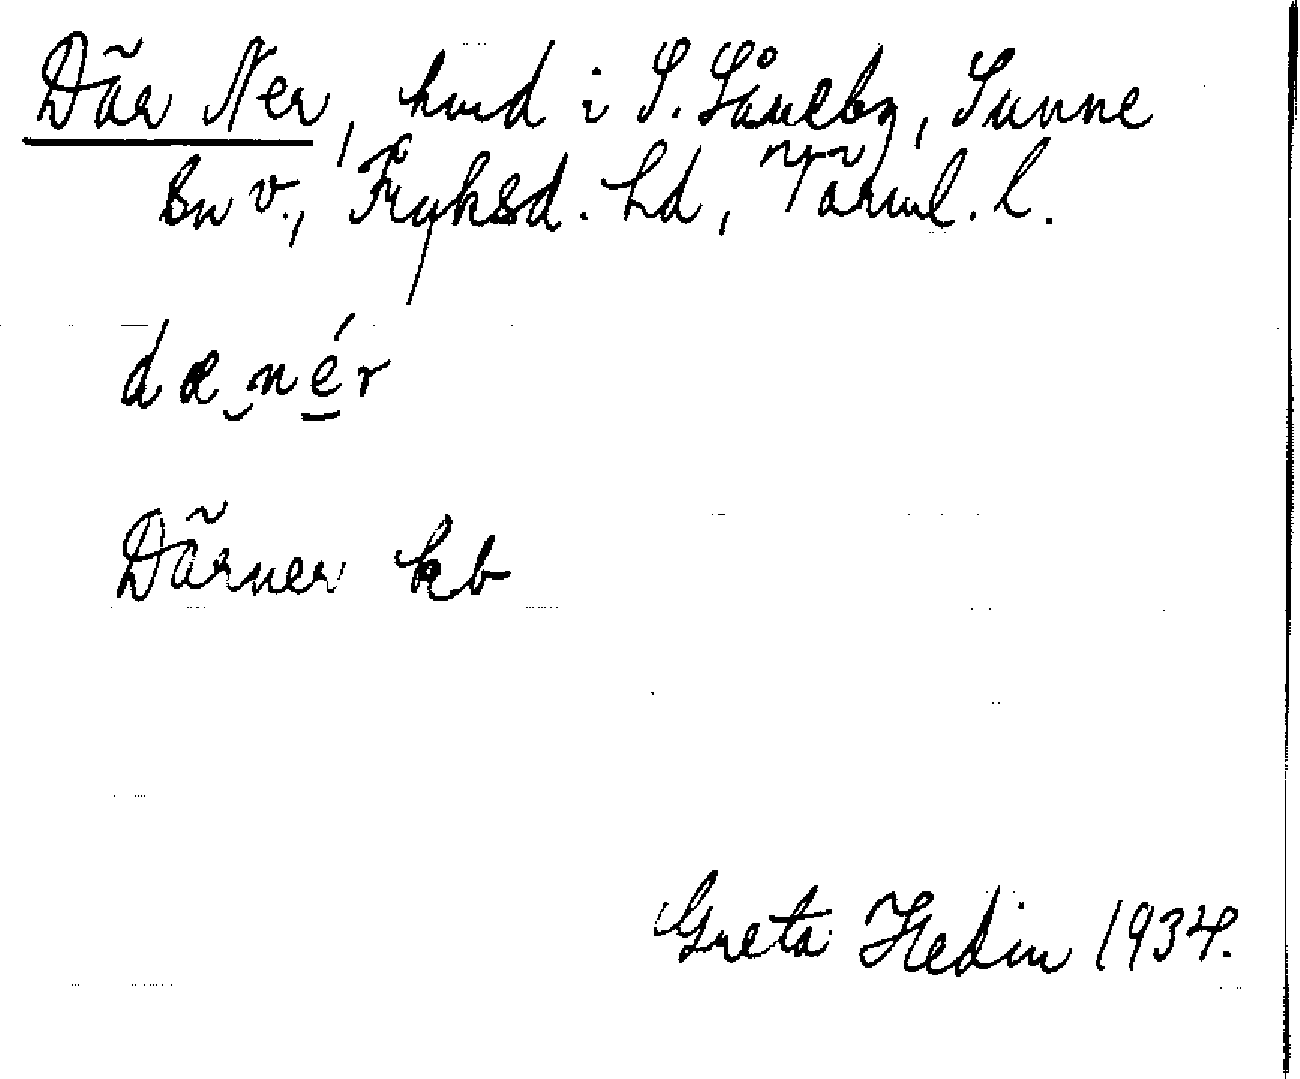 Där Ner, hmd i S. Såneby, Sunne
sn v., Fryksd. hd, Värml. l.
dæ nér
Därner kb
Greta Hedin 1934.